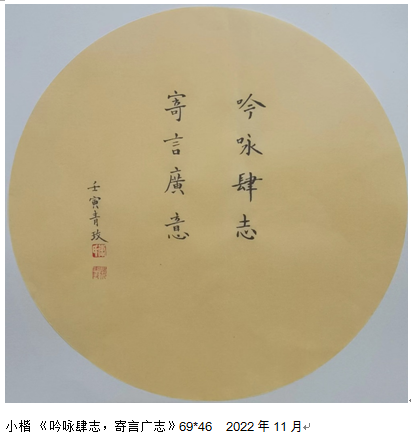 吟咏肆志
寄言廣意
壬寅青玫
小楷《吟咏肆志，寄言广志》69*46 2022年11月